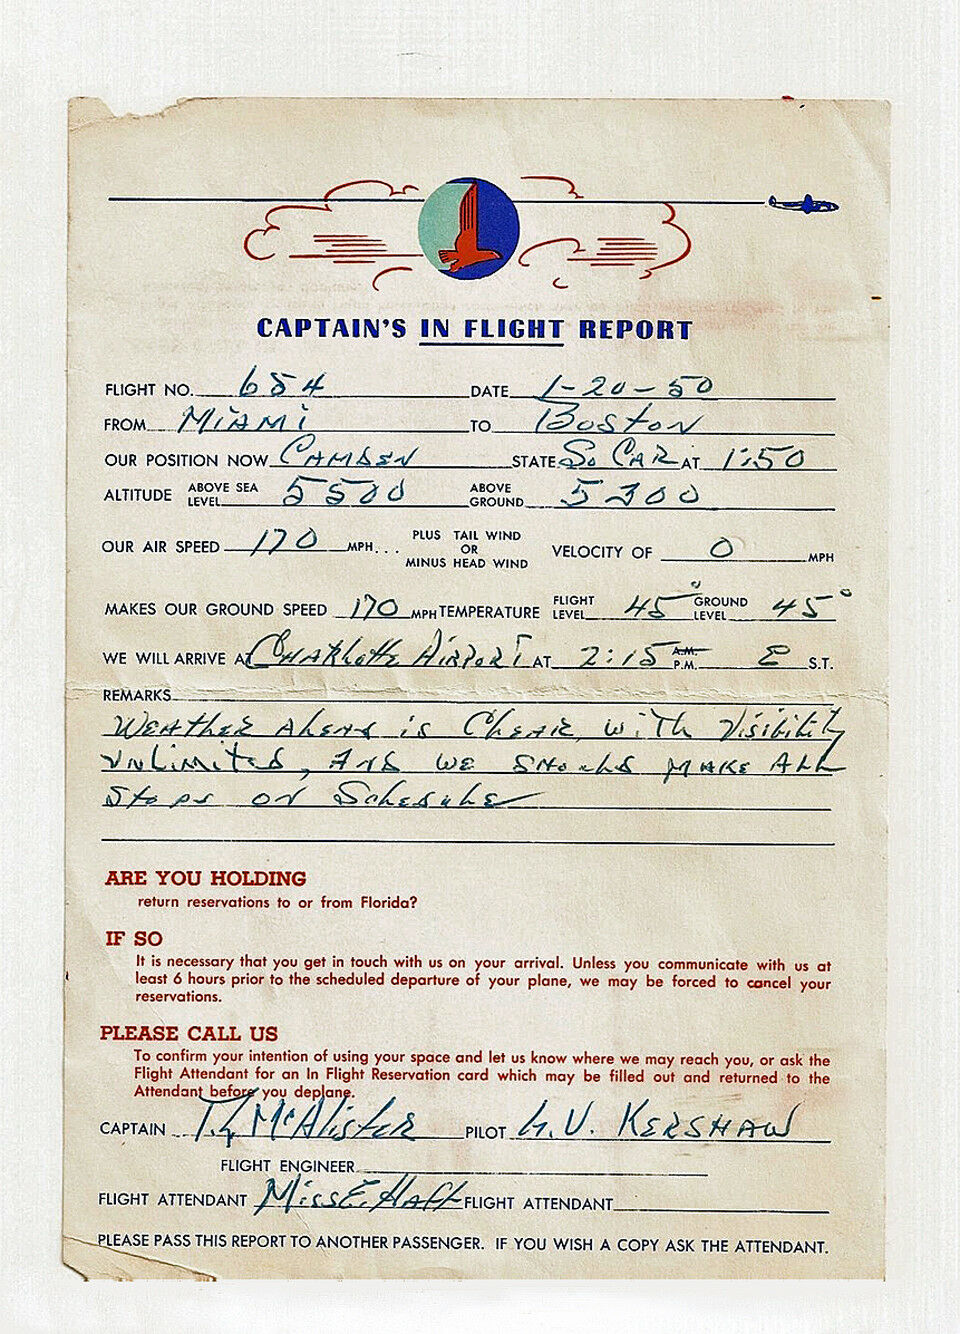 CAPTAIN'S IN FLIGHT REPORT
FLIGHT NO. 654 DATE 1-20-50
FROM MIAMI TO BOSTON
OUR POSITION NOW CAMDEN STATE So CAR AT 1:50
ALTITUDE ABOVE SEA LEVEL 5500 ABOVE GROUND 5300
OUR AIR SPEED 170 MPH... PLUS TAIL WIND OR MINUS HEAD WIND VELOCITY OF 0 MPH
MAKES OUR GROUND SPEED 170 MPH TEMPERATURE FLIGHT LEVEL 45° GROUND LEVEL 45°
WE WILL ARRIVE AT Charlotte Airport AT 2:15 A.M. P.M. E S.T.
REMARKS
WEATHER AHEAD is CLEAR with Visibility
UNLimited, AND WE SHOULD MAKE ALL
Stops on Schedule
ARE YOU HOLDING
return reservations to or from Florida?
IF SO
It is necessary that you get in touch with us on your arrival. Unless you communicate with us at
least 6 hours prior to the scheduled departure of your plane, we may be forced to cancel your
reservations.
PLEASE CALL US
To confirm your intention of using your space and let us know where we may reach you, or ask the
Flight Attendant for an In Flight Reservation card which may be filled out and returned to the
Attendant before you deplane.
CAPTAIN McAlister PILOT KERSHAW
FLIGHT ENGINEER
FLIGHT ATTENDANT Miss E. Haff FLIGHT ATTENDANT
PLEASE PASS THIS REPORT TO ANOTHER PASSENGER. IF YOU WISH A COPY ASK THE ATTENDANT.